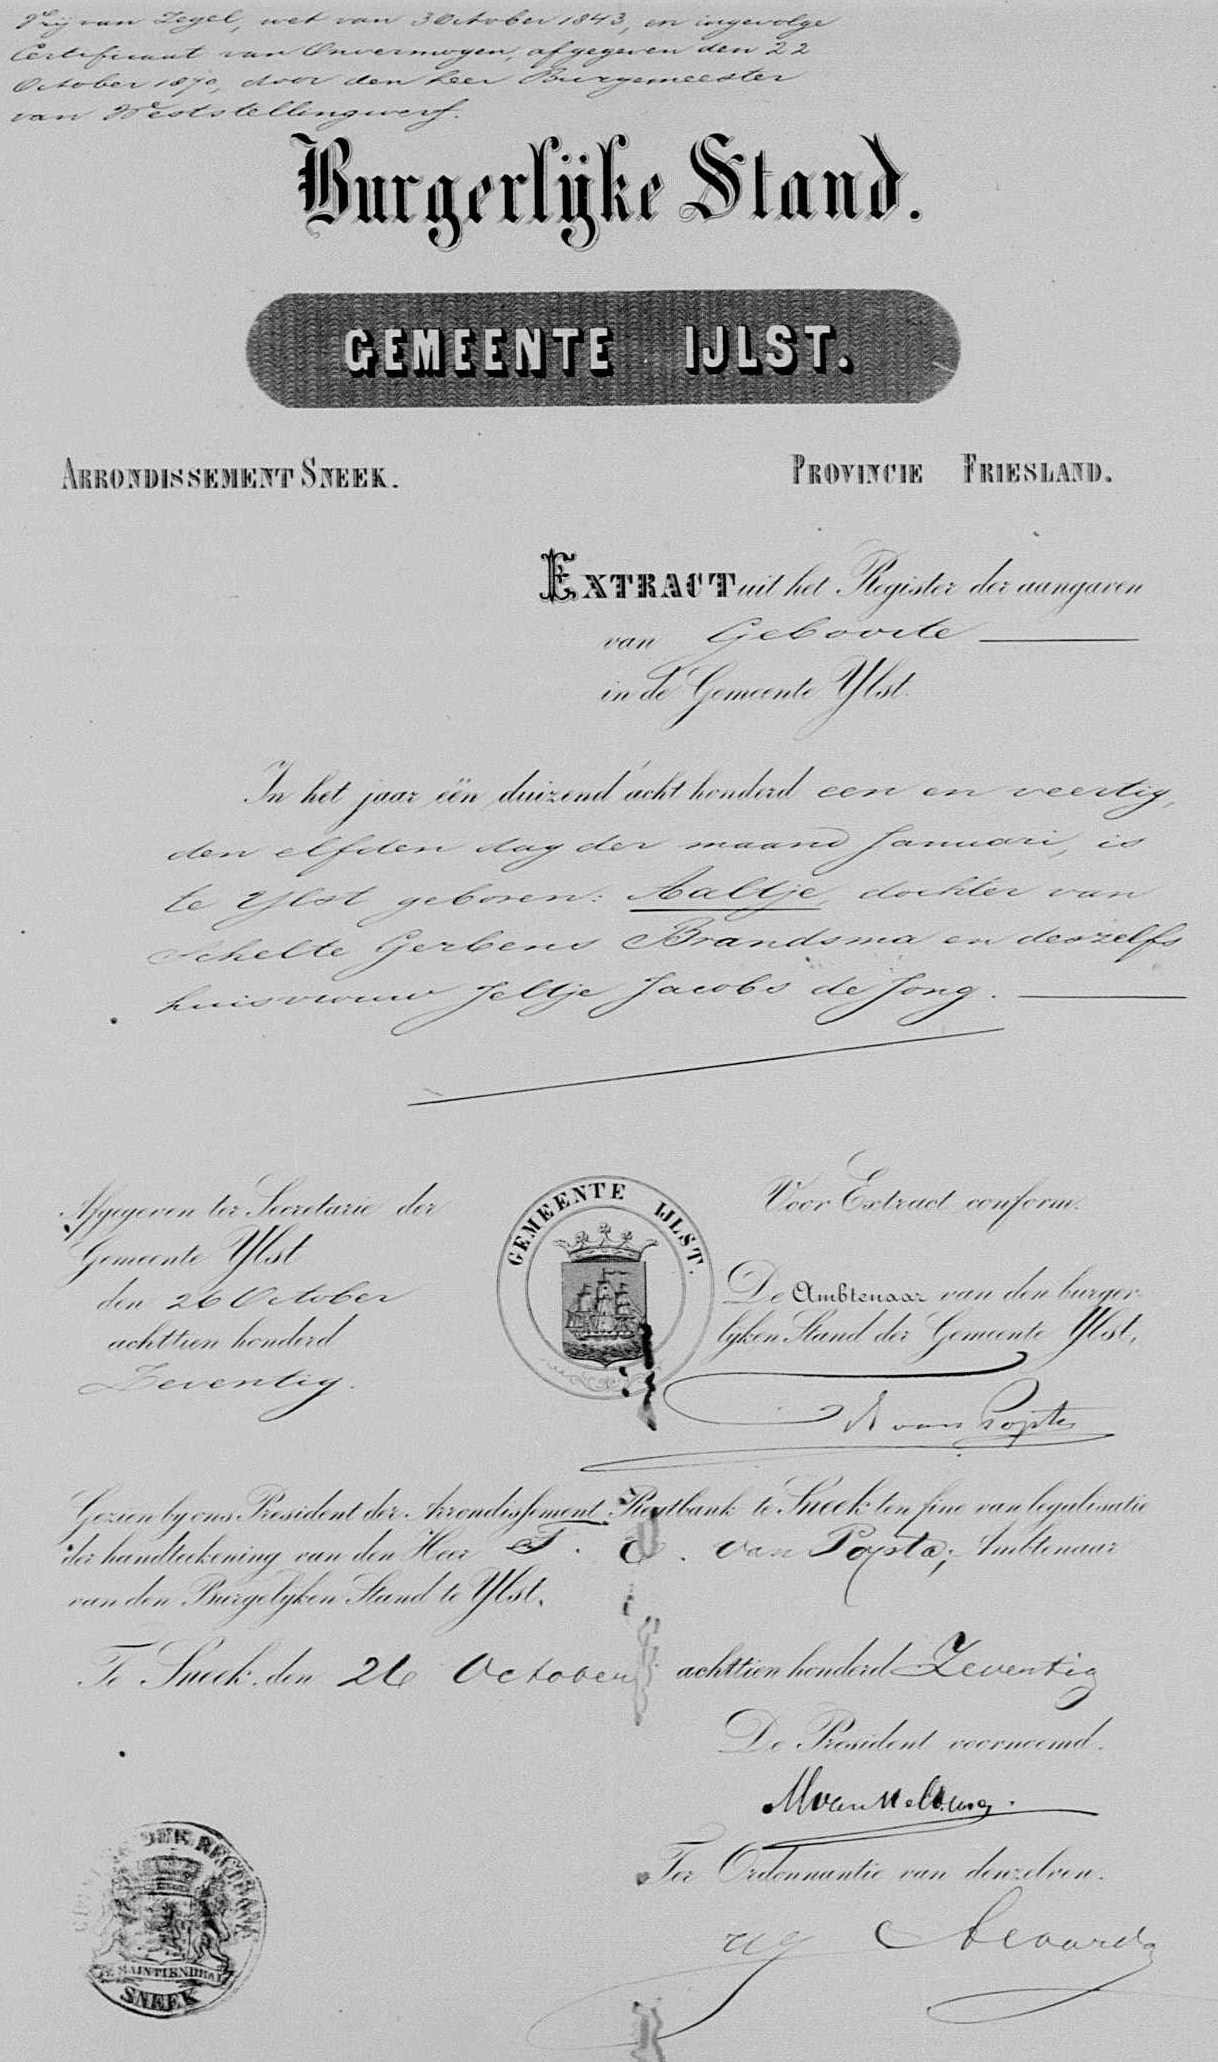 Vrij van Zegel, wet van 3 October 1843, en ingevolge
Certificaat van Onvermogen, afgegeven den 22
October 1870, door den heer Burgemeester
van Weststellingwerf.
Burgerlijke Stand.
GEMEENTE IJLST.
ARRONDISSEMENT SNEEK. PROVINCIE FRIESLAND.
EXTRACT uit het Register der aangaven
van Geboorte
in de Gemeente Ylst.
In het jaar één duizend acht honderd een en veertig,
den elfden dag der maand Januari, is
te Ylst geboren: Aaltje, dochter van
Schelte Gerbens Brandsma en deszelfs
huisvrouw Jeltje Jacobs de Jong.
Afgegeven ter Secretarie der
Gemeente Ylst
den 26 October
achttien honderd
Zeventig.
GEMEENTE IJLST.
Voor Extract conform.
De Ambtenaar van den burger-
lyken Stand der Gemeente Ylst,
van Popta
Gezien by ons President der Arrondissement Regtbank te Sneek ten fine van legalisatie
der handteekening van den Heer van Popta, Ambtenaar
van den Burgelyken Stand te Ylst.
Te Sneek, den 26 October achttien honderd Zeventig
De President voornoemd.
Ter Ordonnantie van denzelven.
JE MAINTIENDRAI
SNEEK